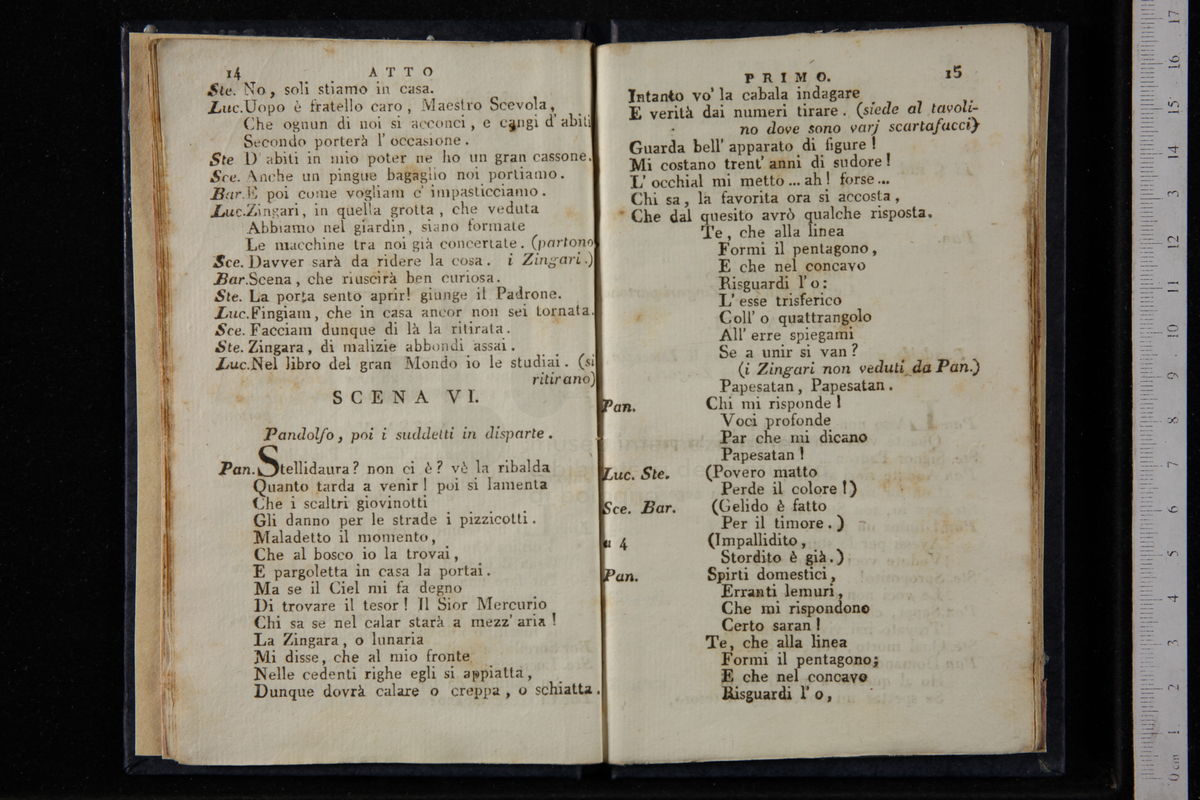 14 ATTO
Ste. No, soli stiamo in casa.
Luc. Uopo è fratello caro, Maestro Scevola,
Che ognun di noi si acconci, e cangi d' abiti
Secondo porterà l' occasione.
Ste D' abiti in mio poter ne ho un gran cassone.
Sce. Anche un pingue bagaglio noi portiamo.
Bar. E poi come vogliam c' impasticciamo.
Luc. Zingari, in quella grotta, che veduta
Abbiamo nel giardin, siano formate
Le macchine tra noi già concertate. (partono
Sce. Davver sarà da ridere la cosa. i Zingari.)
Bar. Scena, che riuscirà ben curiosa.
Ste. La porta sento aprir! giunge il Padrone.
Luc. Fingiam, che in casa ancor non sei tornata.
Sce. Facciam dunque di là la ritirata.
Ste. Zingara, di malizie abbondi assai.
Luc. Nel libro del gran Mondo io le studiai. (si
ritirano)
SCENA VI.
Pandolfo, poi i suddetti in disparte.
Pan. Stellidaura? non ci è? vè la ribalda
Quanto tarda a venir! poi si lamenta
Che i scaltri giovinotti
Gli danno per le strade i pizzicotti.
Maladetto il momento,
Che al bosco io la trovai,
E pargoletta in casa la portai.
Ma se il Ciel mi fa degno
Di trovare il tesor! Il Sior Mercurio
Chi sa se nel calar starà a mezz' aria!
La Zingara, o lunaria
Mi disse, che al mio fronte
Nelle cedenti righe egli si appiatta,
Dunque dovrà calare o creppa, o schiatta.
PRIMO. 15
Intanto vo' la cabala indagare
E verità dai numeri tirare. (siede al tavoli-
no dove sono varj scartafacci)
Guarda bell' apparato di figure!
Mi costano trent' anni di sudore!
L' occhial mi metto ... ah! forse ...
Chi sa, la favorita ora si accosta,
Che dal quesito avrò qualche risposta.
Te, che alla linea
Formi il pentagono,
E che nel concavo
Risguardi l' o:
L' esse trisferico
Coll' o quattrangolo
All' erre spiegami
Se a unir si van?
(i Zingari non veduti da Pan.)
Papesatan, Papesatan.
Pan. Chi mi risponde!
Voci profonde
Par che mi dicano
Papesatan!
Luc. Ste. (Povero matto
Perde il colore!)
Sce. Bar. (Gelido è fatto
Per il timore.)
a 4 (Impallidito,
Stordito è già.)
Pan. Spirti domestici,
Erranti lemuri,
Che mi rispondono
Certo saran!
Te, che alla linea
Formi il pentagono;
E che nel concavo
Risguardi l' o,